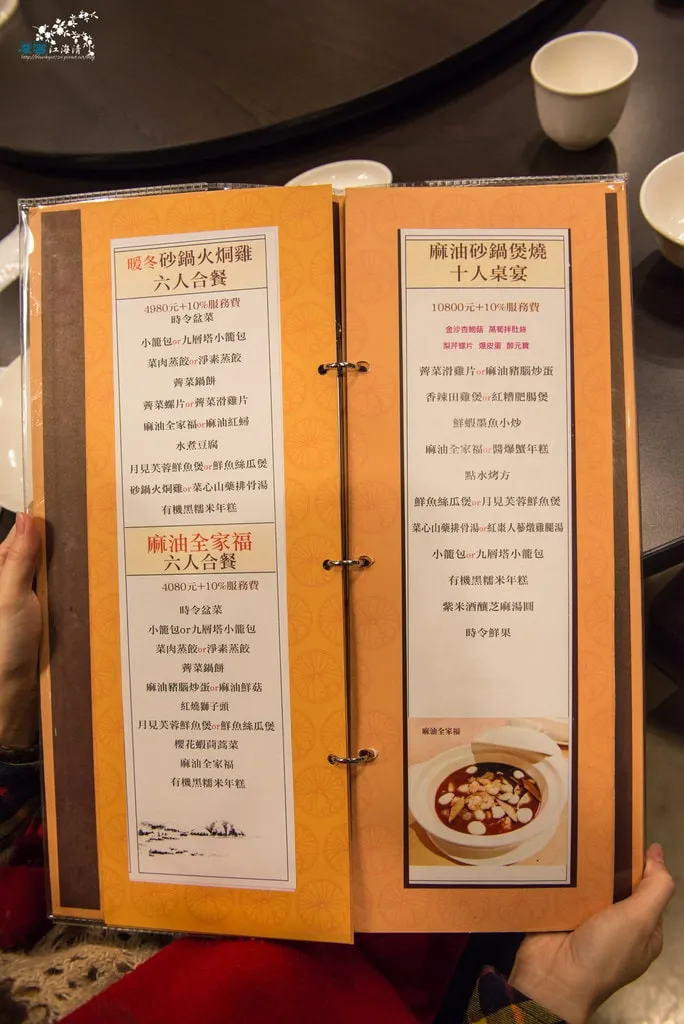 江海清
暖冬砂鍋火焗雞
六人合餐
4980元+10%服務費
時令盆菜
小籠包or九層塔小籠包
菜肉蒸餃or淨素蒸餃
薺菜鍋餅
薺菜螺片or薺菜滑雞片
麻油全家福or麻油紅蟳
水煮豆腐
月見芙蓉鮮魚煲or鮮魚絲瓜煲
砂鍋火焗雞or菜心山藥排骨湯
有機黑糯米年糕
麻油全家福
六人合餐
4080元+10%服務費
時令盆菜
小籠包or九層塔小籠包
菜肉蒸餃or淨素蒸餃
薺菜鍋餅
麻油豬腦炒蛋or麻油鮮菇
紅燒獅子頭
月見芙蓉鮮魚煲or鮮魚絲瓜煲
櫻花蝦茼蒿菜
麻油全家福
有機黑糯米年糕
麻油砂鍋煲燒
十人桌宴
10800元+10%服務費
金沙杏鮑菇 萵筍拌肚絲
梨芹螺片 爆皮蛋 醉元寶
薺菜滑雞片or麻油豬腦炒蛋
香辣田雞煲or紅糟肥腸煲
鮮蝦墨魚小炒
麻油全家福or醬爆蟹年糕
點水烤方
鮮魚絲瓜煲or月見芙蓉鮮魚煲
菜心山藥排骨湯or紅棗人蔘燉雞腿湯
小籠包or九層塔小籠包
有機黑糯米年糕
紫米酒釀芝麻湯圓
時令鮮果
麻油全家福